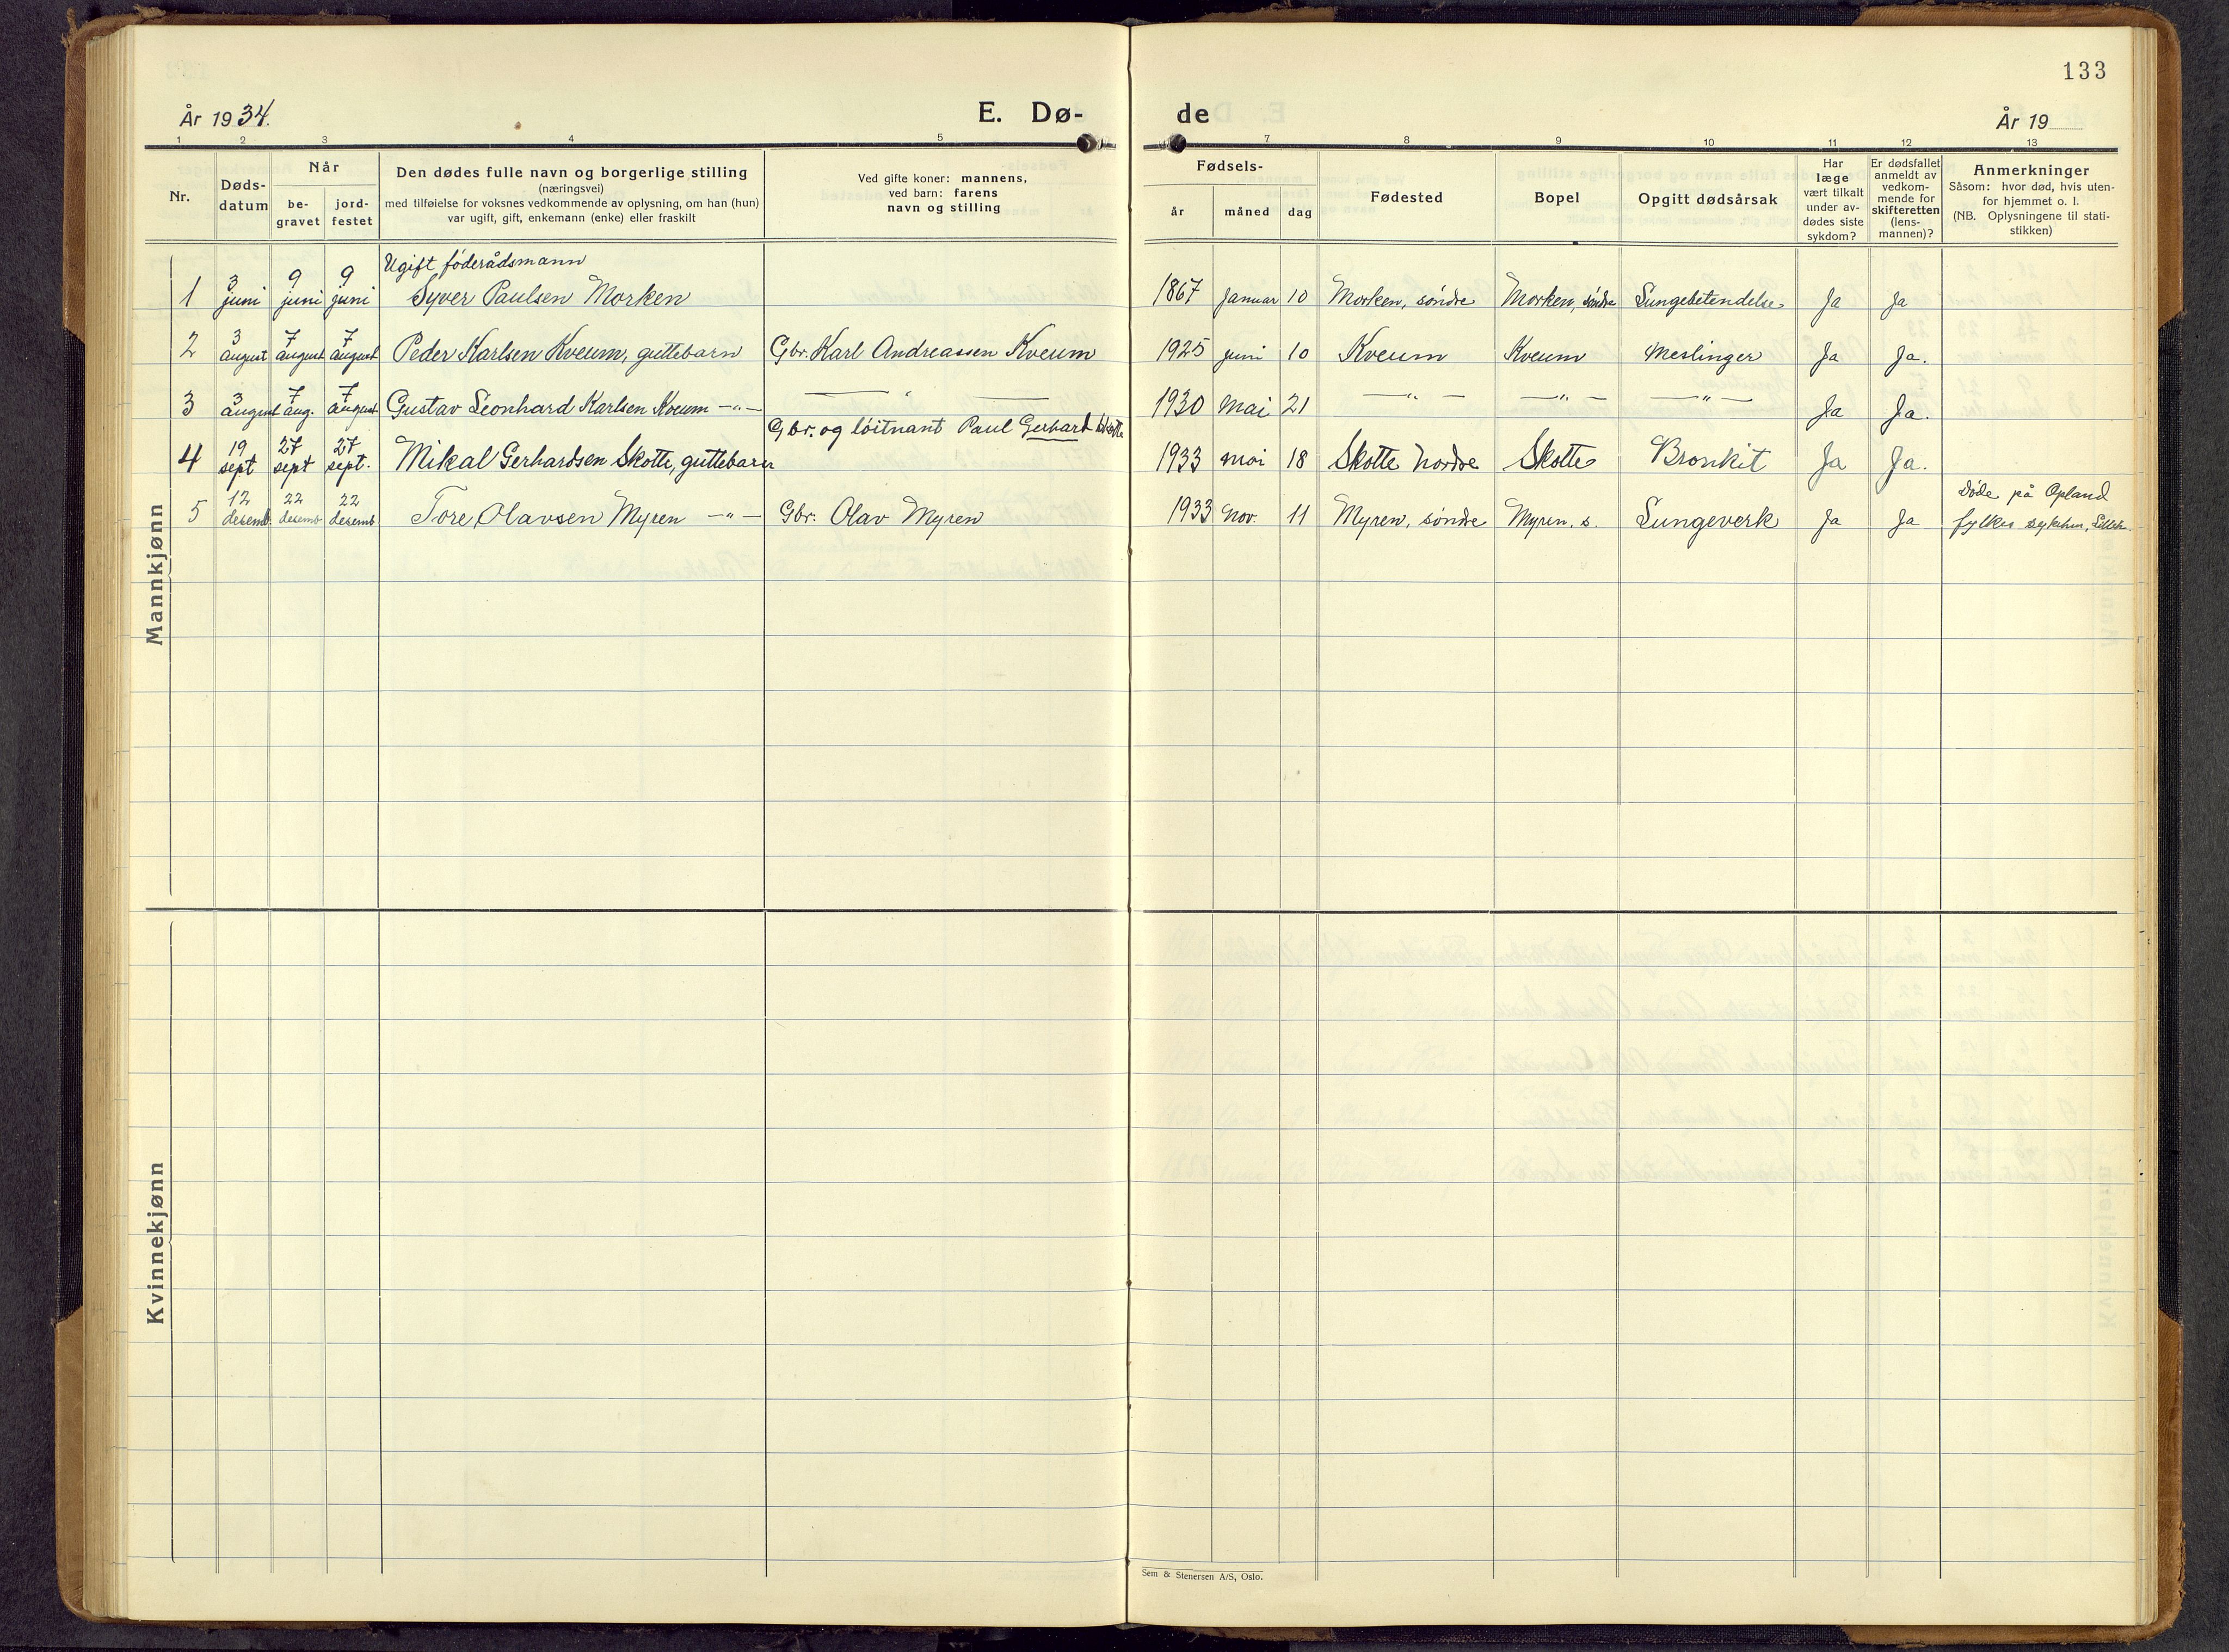 133
År 1934. E. Dø- de År 19
1 2 3 4 5 7 8 9 10 11 12 13
Nr.
Døds-
datum
Når
be-
gravet
jord-
festet
Den dødes fulle navn og borgerlige stilling
(næringsvei)
med tilføielse for voksnes vedkommende av oplysning, om han (hun)
var ugift, gift, enkemann (enke) eller fraskilt
Ved gifte koner: mannens,
ved barn: farens
navn og stilling
Fødsels-
år måned dag
Fødested
Bopel
Opgitt dødsårsak
Har
læge
vært tilkalt
under av-
dødes siste
sykdom?
Er dødsfallet
anmeldt av
vedkom-
mende for
skifteretten
(lens-
mannen)?
Anmerkninger
Såsom: hvor død, hvis uten-
for hjemmet o. l.
(NB. Oplysningene til stati-
stikken)
Mannkjønn
3 9 9 Ugift föderådsmann
1 juni juni juni Syver Paulsen Morken 1867 Januar 10 Morken, söndre Morken, söndre Lungebetendelse Ja Ja
3 7 7
2 august august august Peder Karlsen Kveum, guttebarn Gbr. Karl Andreassen Kveum 1925 juni 10 Kveum Kveum Meslinger Ja Ja.
3 7 7
3 august aug. august Gustav Leonhard Karlsen Kveum —"— — " — 1930 Mai 21 —"— —"— —"— Ja Ja.
Gbr. og löitnant Paul Gerhard
19 27 27
4 sept sept sept. Mikal Gerhardsen Skotte, guttebarn 1933 mai 18 Skotte nordre Skotte Bronkit Ja Ja.
12 22 22 Döde på Opland
5 desemb. desemb desemb Tore Olavsen Myren —"— Gbr. Olav Myren 1933 Nov. 11 Myren, söndre Myren, s. Lungeverk Ja Ja fylkes sykehus,
Kvinnekjønn
Sem & Stenersen A/S, Oslo.